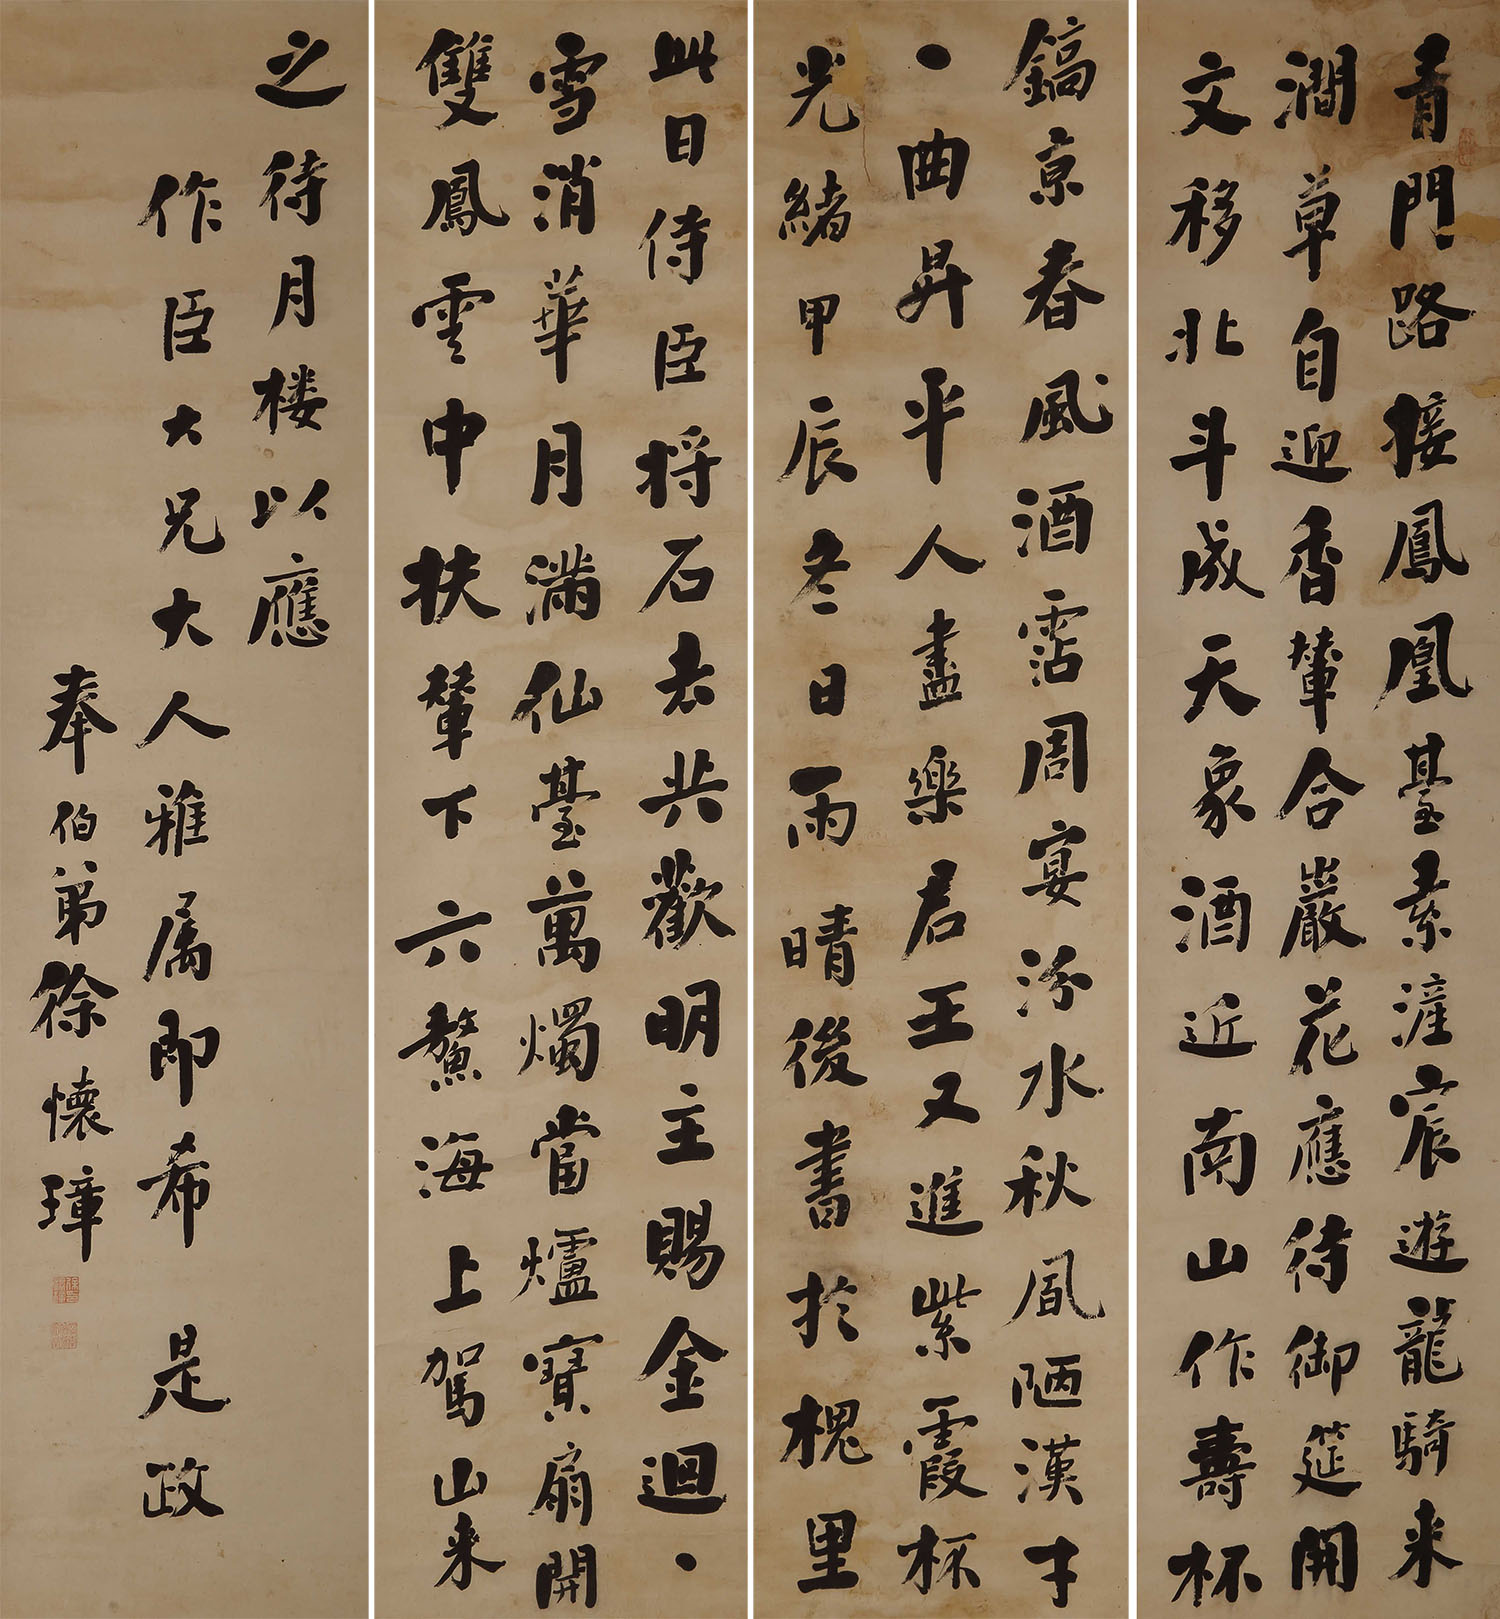 青門路接鳳凰臺素滻宸遊龍騎来
澗草自迎香輦合巖花應待御筵開
文移北斗成天象酒近南山作壽杯
此日侍臣将石去共歡明主賜金迴、
雪消華月滿仙臺萬燭當爐寳扇開
雙鳳雲中扶輦下六鰲海上駕山来
鎬京春風酒霑周宴汾水秋風陋漢才
、曲昇平人盡樂君王又進紫霞杯
光緒甲辰冬日雨晴後書於槐里
之待月楼以應
作臣大兄大人雅属即希是政
奉伯弟徐懷璋